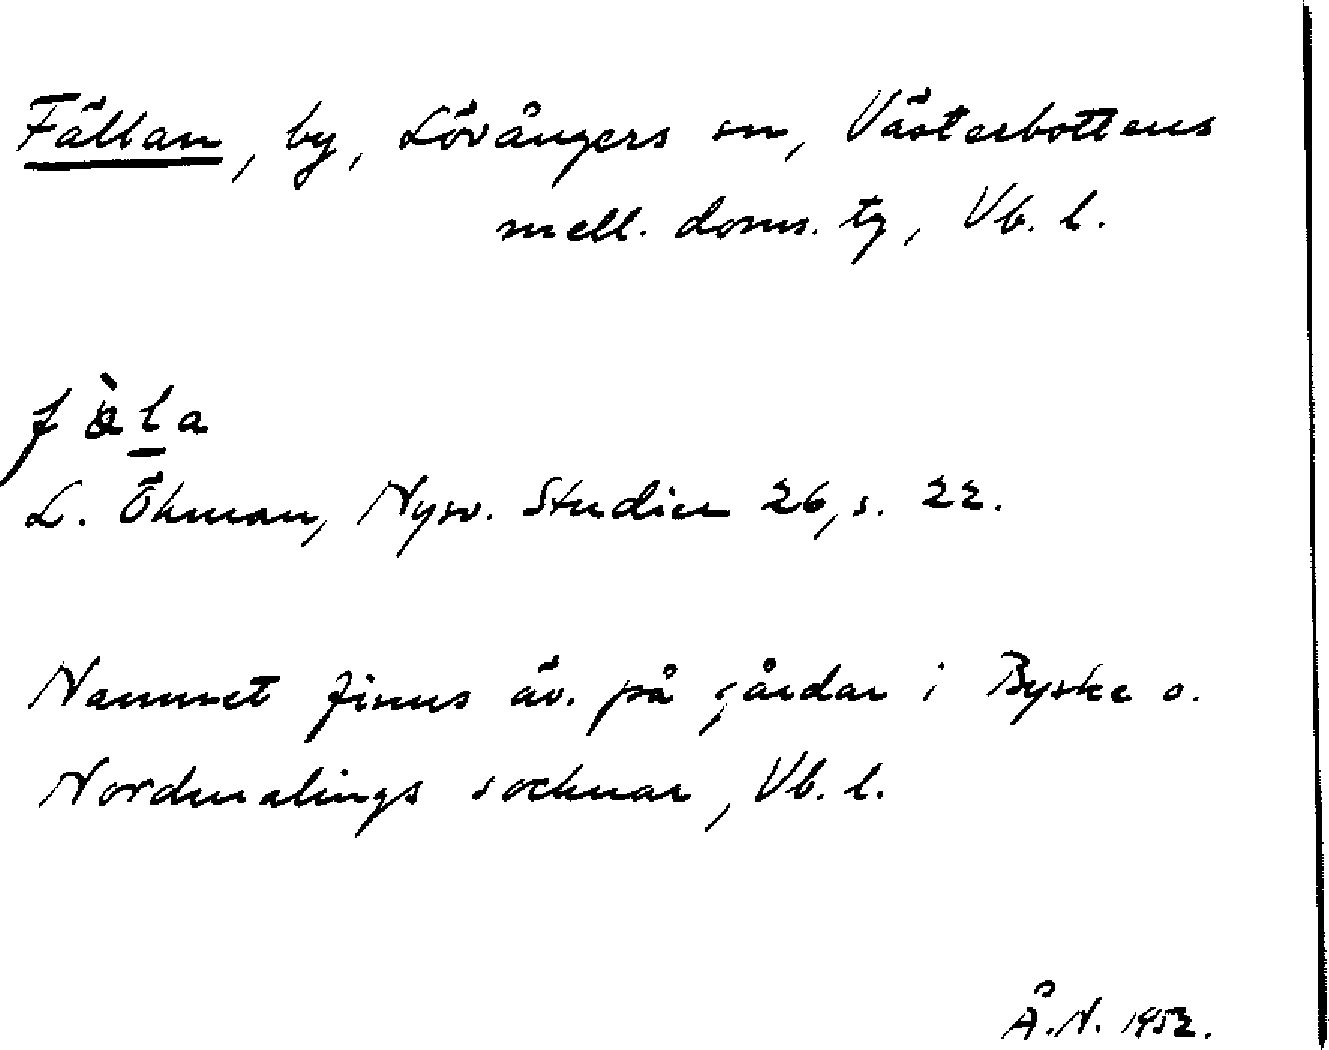 Fällan, by, Lövångers sn, Västerbottens
mell. doms. tg, Vb. l.
L. Öhman, Nysv. Studier 26, s. 22.
Namnet finns äv. på gårdar i Byske o.
Nordmalings socknar, Vb. l.
Å.N. 1952.